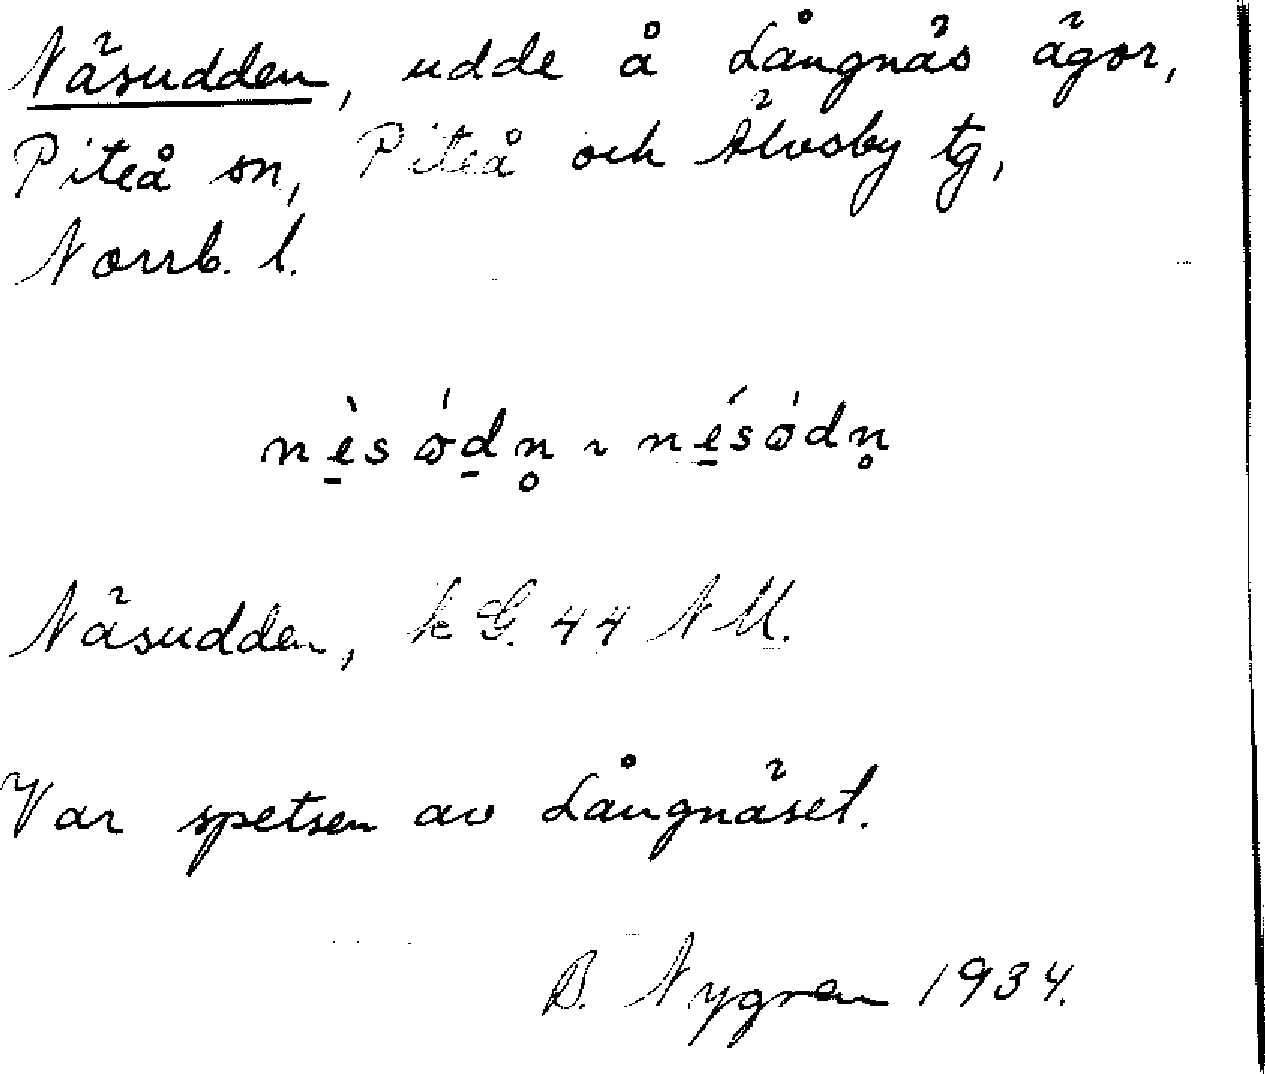 Näsudden, udde å Långnäs ägor,
Piteå sn, Piteå och Älvsby tg,
Norrb. l.
nè̱s ó̱dn̥ ~ né̱sódn̥
Näsudden, k G. 44 NM.
Var spetsen av Långnäset.
B. Nygren 1934.